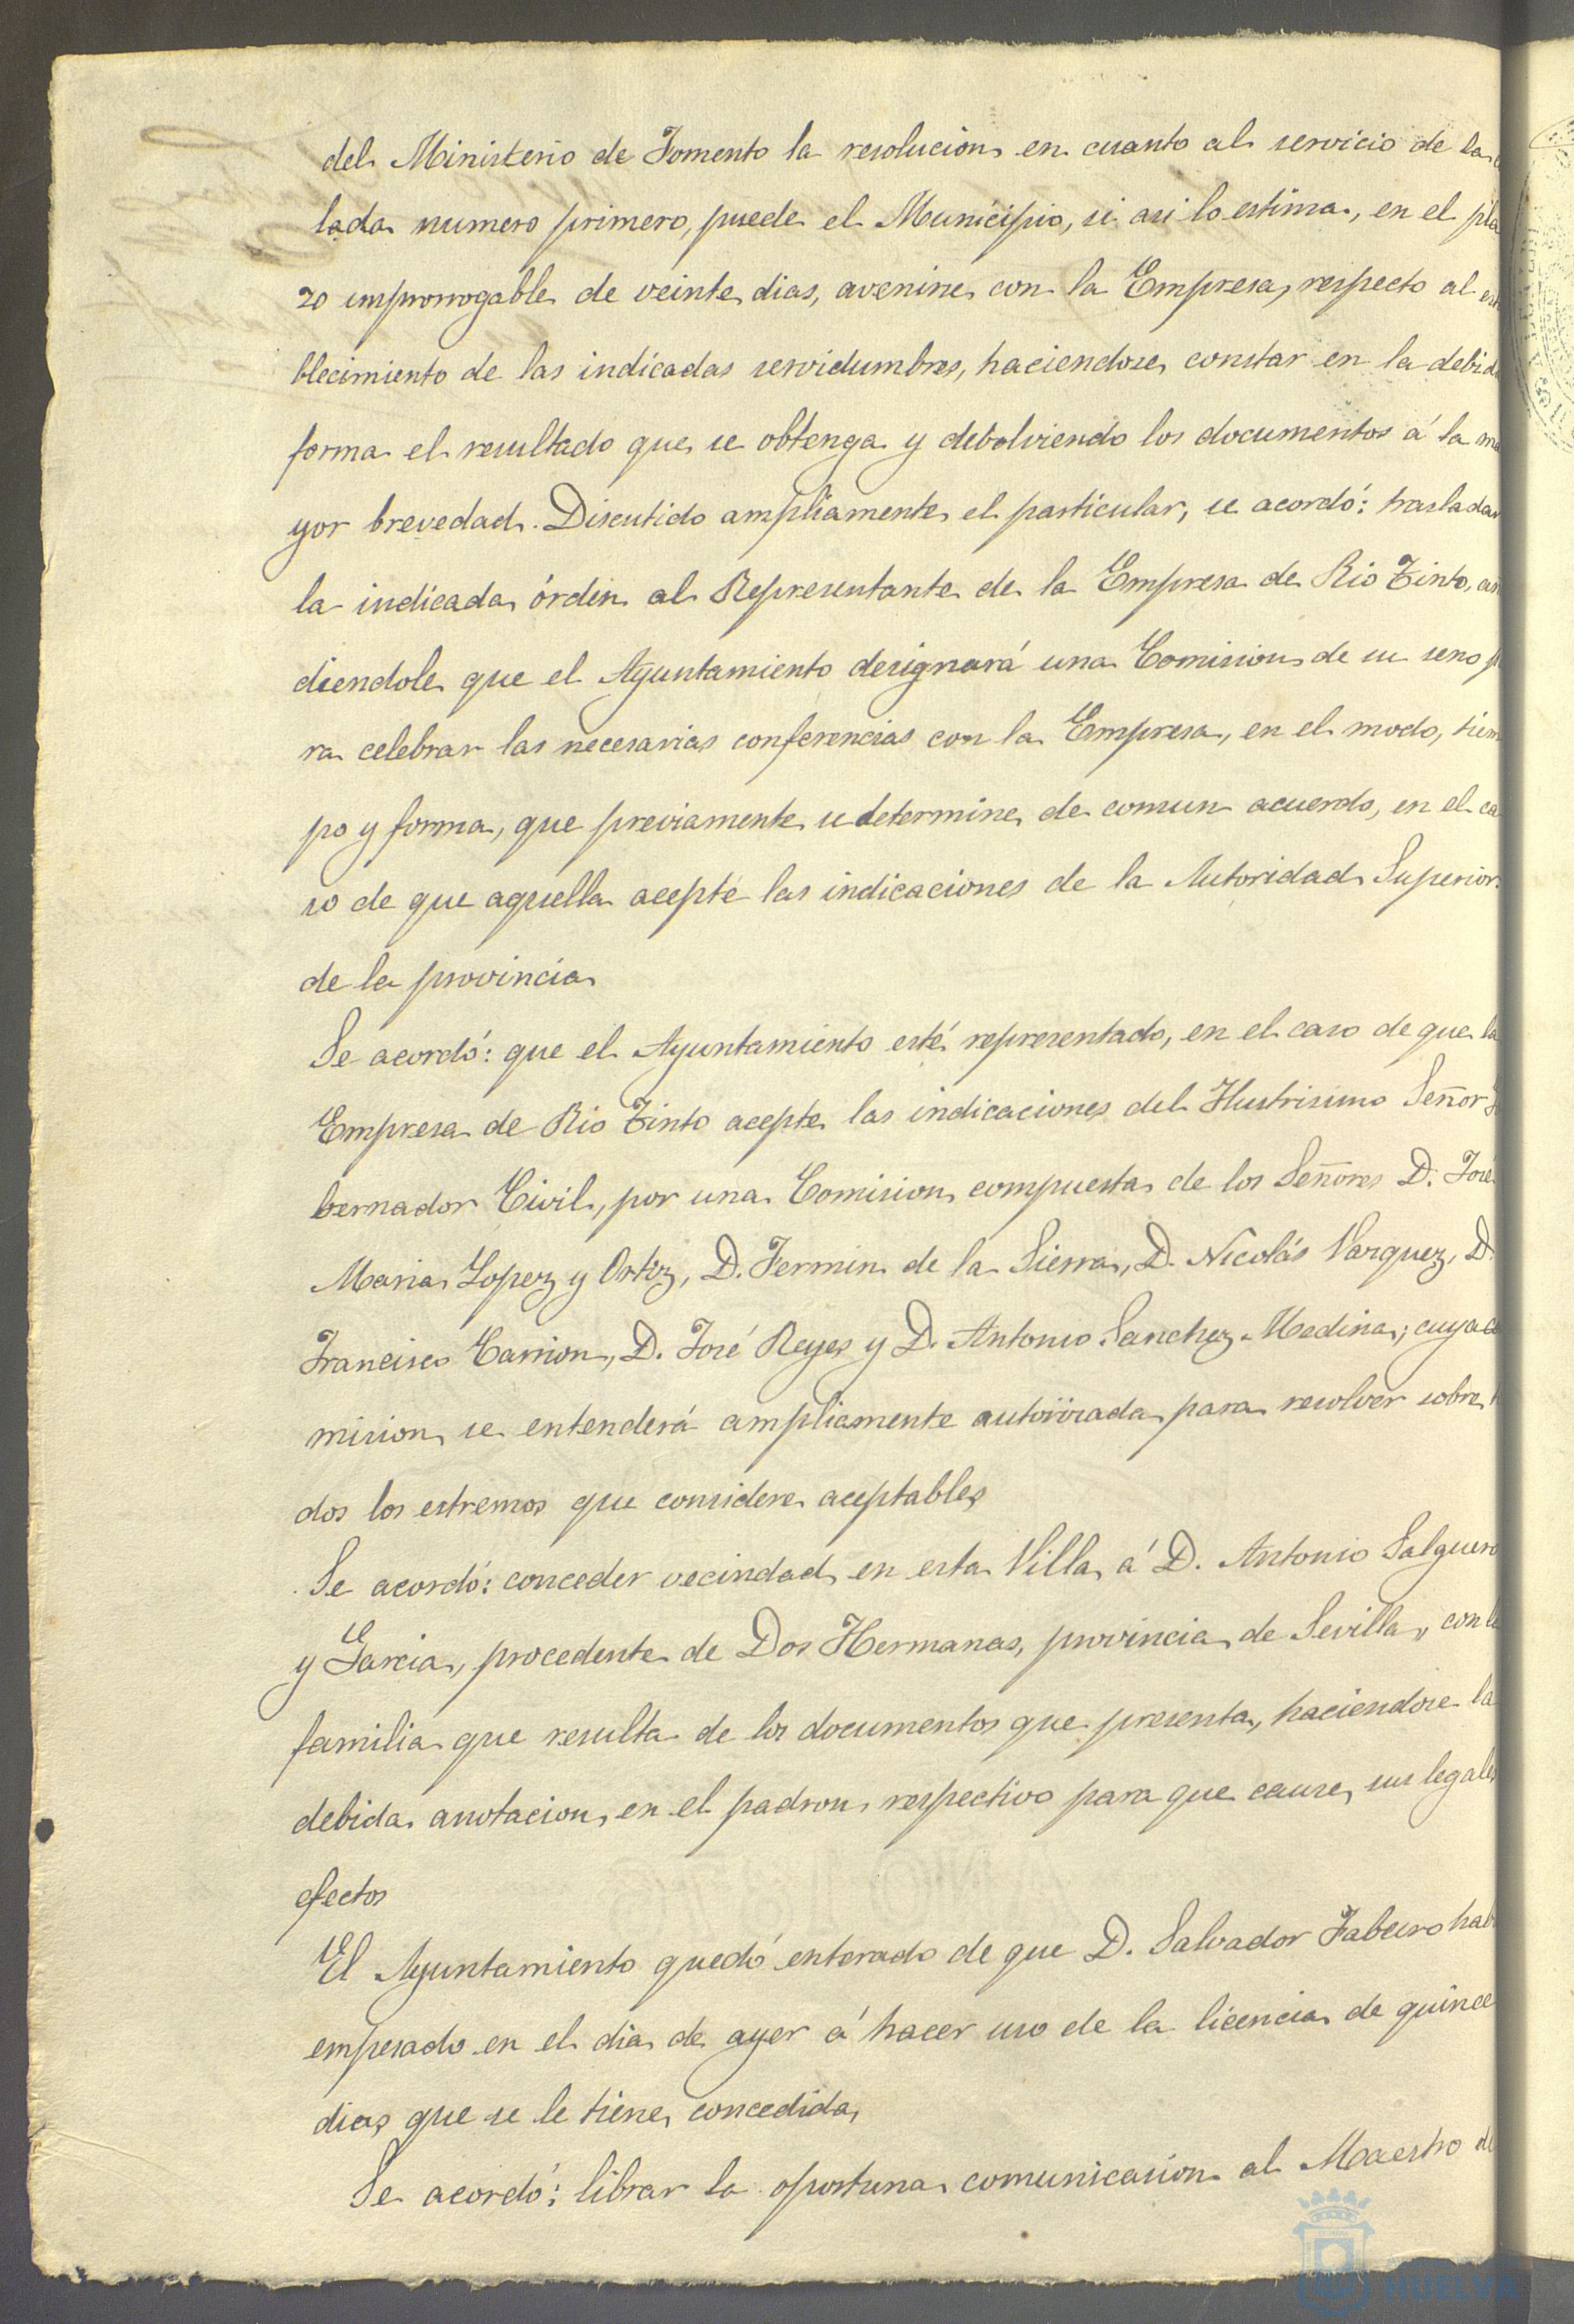 del Ministerio de Fomento la resolucion en cuanto al servicio de la
lada numero primero, puede el Municipio, si asi lo estima, en el pla
zo improrrogable de veinte dias, avenirse con la Empresa, respecto al esta
blecimiento de las indicadas servidumbres, haciendose constar en la debida
forma el resultado que se obtenga y debolviendo los documentos á la ma
yor brevedad. Discutido ampliamente el particular, se acordó: trasladar
la indicada órden al Representante de la Empresa de Rio Tinto,
diendole que el Ayuntamiento designará una Comision de su seno pa
ra celebrar las necesarias conferencias con la Empresa, en el modo, tiem
po y forma, que previamente se determine de comun acuerdo, en el ca
so de que aquella acepte las indicaciones de la Autoridad Superior
de la provincia
Se acordó: que el Ayuntamiento esté representado, en el caso de que la
Empresa de Rio Tinto acepte las indicaciones del Ilustrisimo Señor Go
bernador Civil, por una Comision compuesta de los Señores D. José
Maria Lopez y Ortiz, D. Fermin de la Sierra, D. Nicolás Vazquez, D.
Francisco Carrion, D. José Reyes y D. Antonio Sanchez-Medina; cuya co
mision se entenderá ampliamente autorizada para resolver sobre to
dos los estremos que considere aceptables
Se acordó: conceder vecindad en esta Villa á D. Antonio Salguero
y Garcia, procedente de Dos Hermanas, provincia de Sevilla, con la
familia que resulta de los documentos que presenta, haciendose la
debida anotacion en el padron respectivo para que cause sus legales
efectos
El Ayuntamiento quedó enterado de que D. Salvador Fabeiro habia
empesado en el dia de ayer á hacer uso de la licencia de quince
dias que se le tiene concedida
Se acordó: librar la oportuna comunicasion al Maestro de
HUELVA